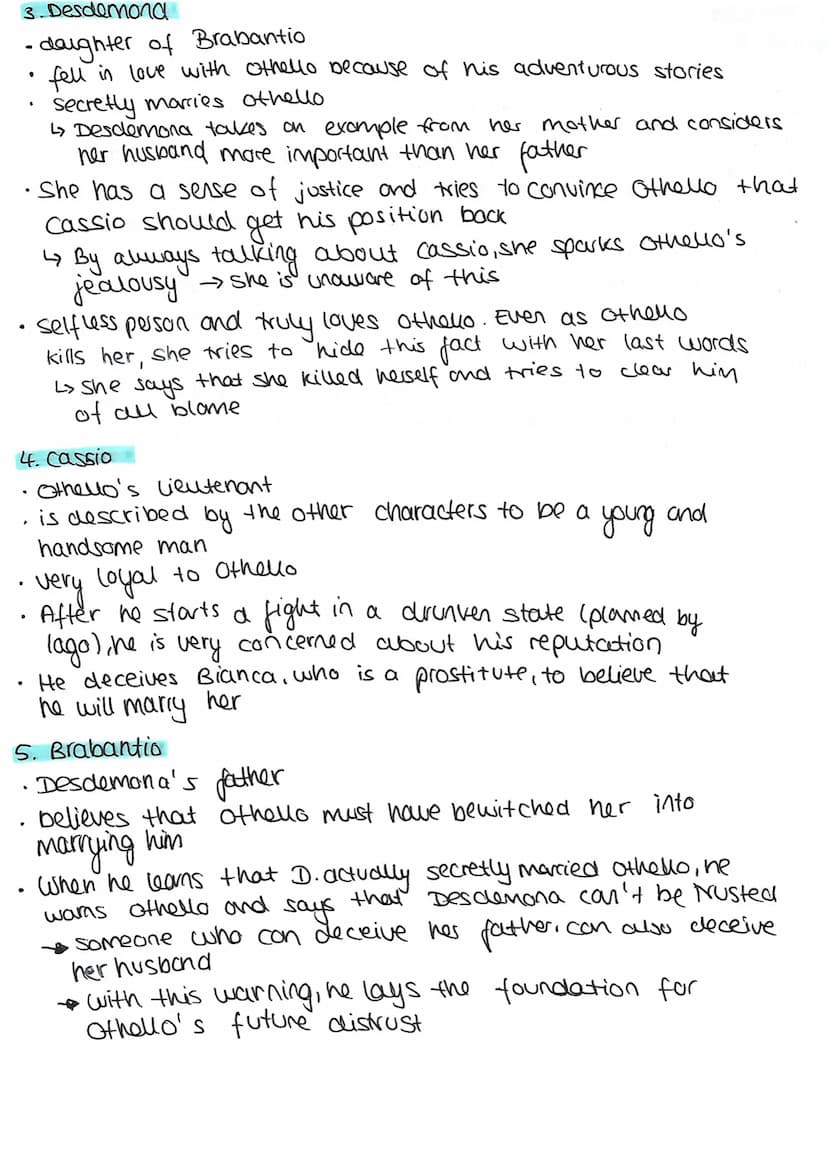 3. Desdemona
- daughter of Brabantio
• fell in love with Othello because of his adventurous stories
• secretly marries Othello
↳ Desdemona takes an example from her mother and considers
her husband more important than her father
• She has a sense of justice and tries to convince Othello that
Cassio should get his position back
↳ By always talking about Cassio, she sparks Othello's
jealousy → she is unaware of this
• selfless person and truly loves Othello. Even as Othello
kills her, she tries to hide this fact with her last words
↳ she says that she killed herself and tries to clear him
of all blame
4. Cassio
• Othello's Lieutenant
• is described by the other characters to be a young and
handsome man
• very loyal to Othello
• After he starts a fight in a drunken state (planned by
Iago), he is very concerned about his reputation
• He deceives Bianca, who is a prostitute, to believe that
he will marry her
5. Brabantio
• Desdemona's father
• believes that Othello must have bewitched her into
marrying him
• When he learns that D. actually secretly married Othello, he
warns Othello and says that Desdemona can't be trusted
→ someone who can deceive her father, can also deceive
her husband
→ with this warning, he lays the foundation for
Othello's future distrust